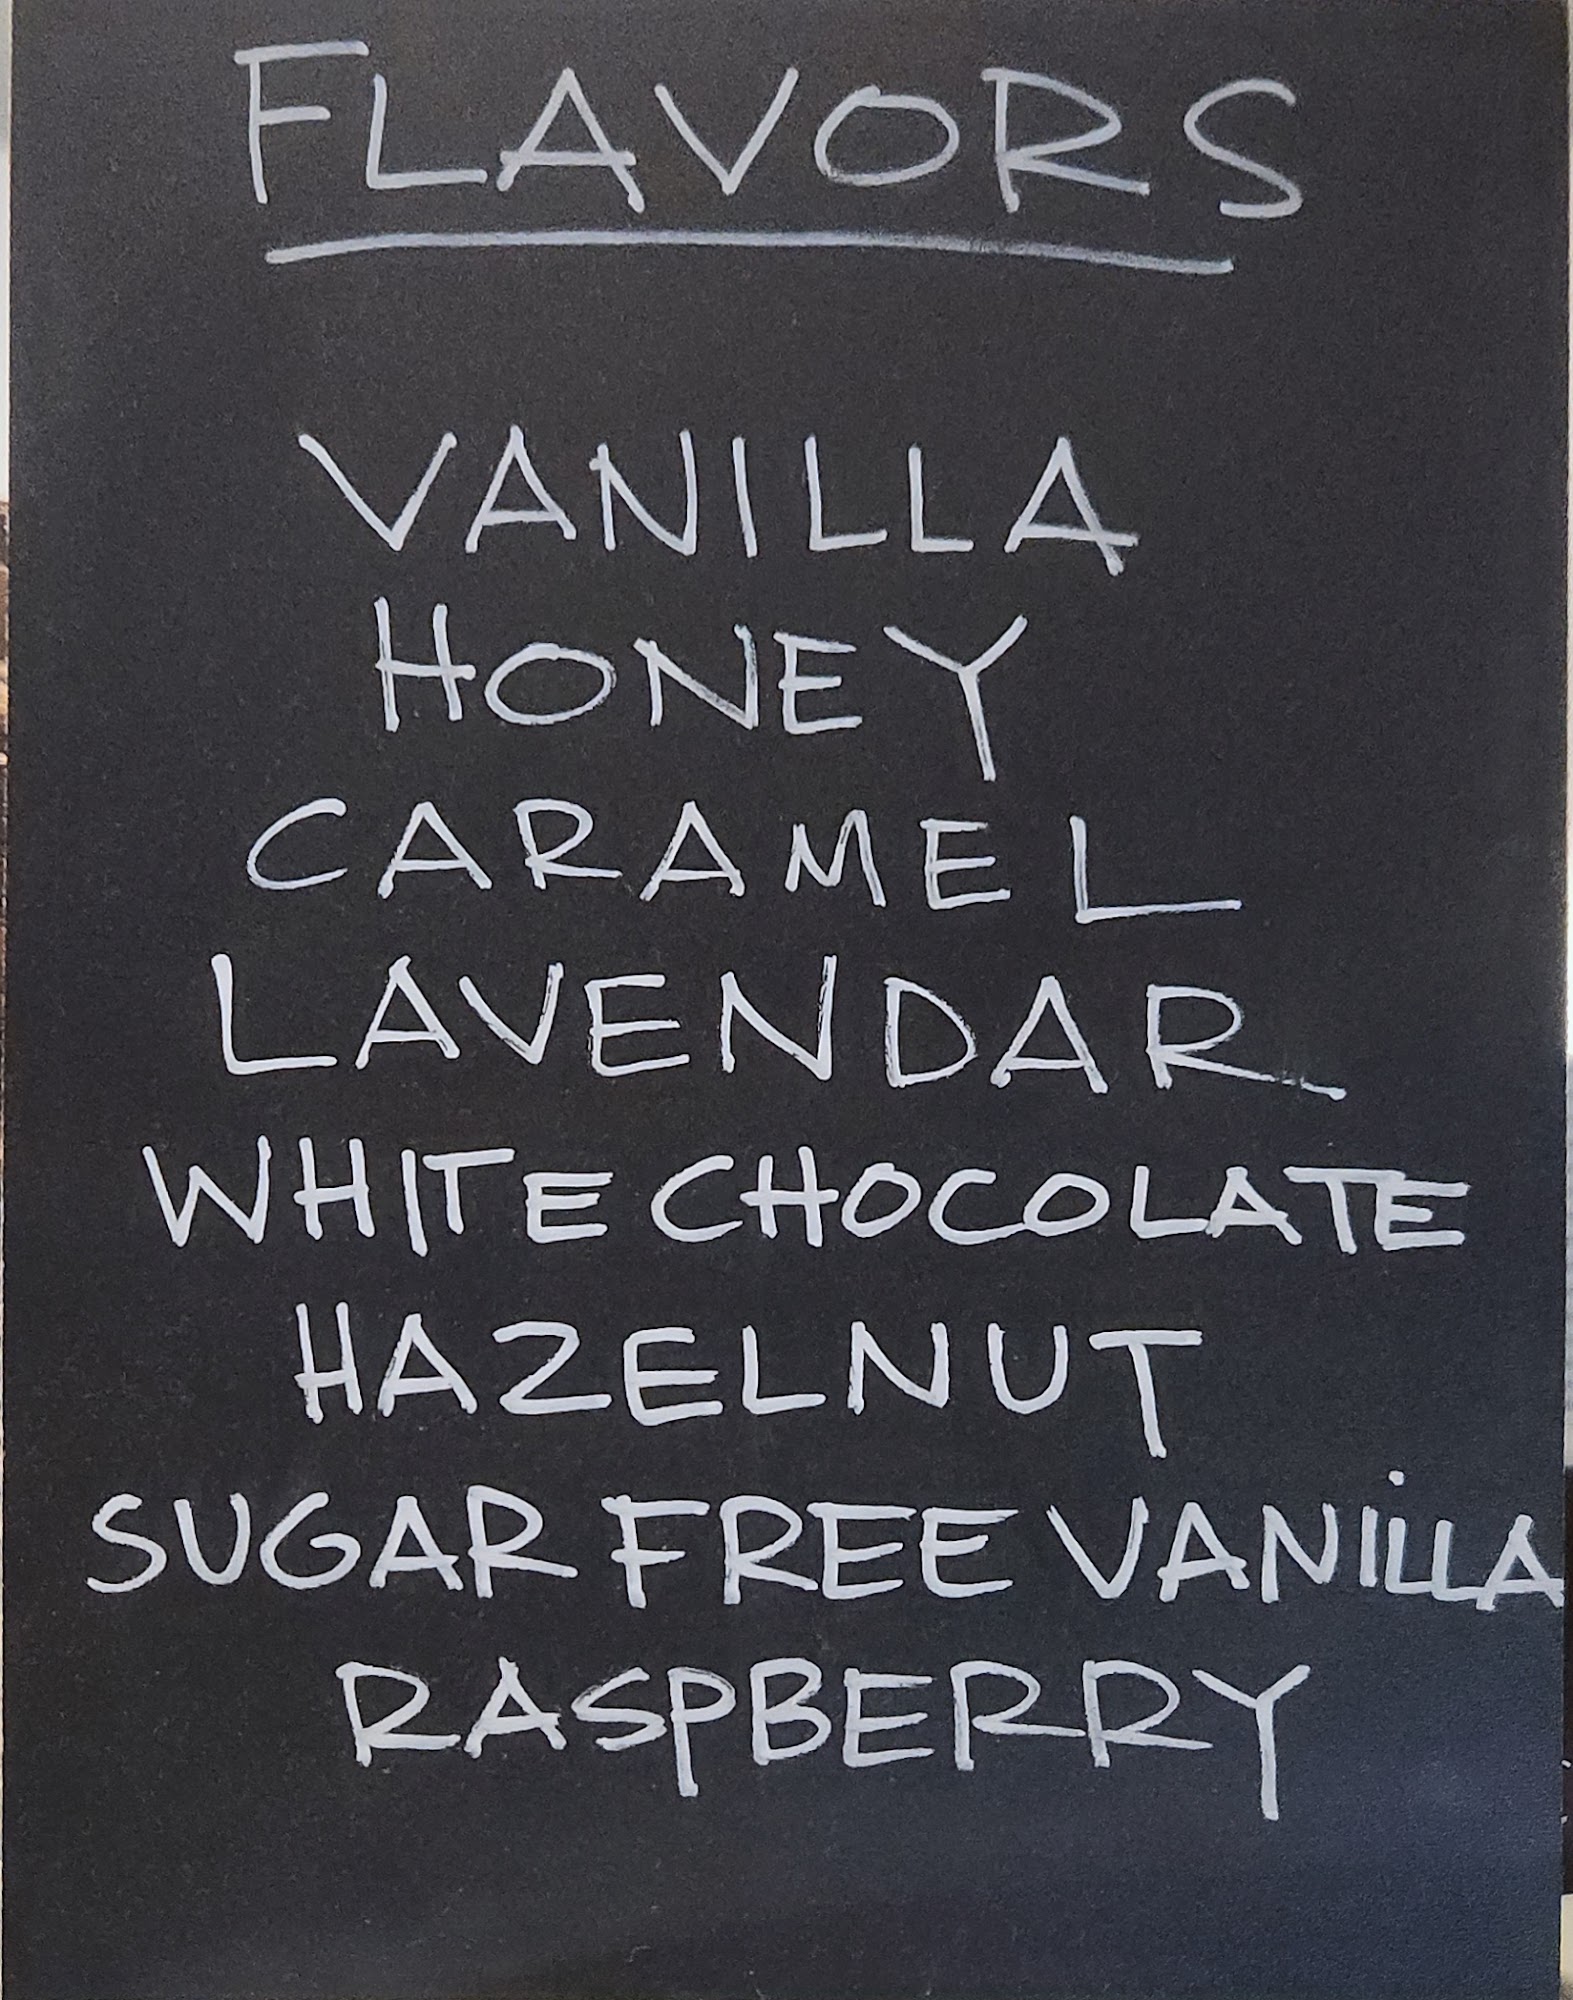 FLAVORS
VANILLA
HONEY
CARAMEL
LAVENDAR
WHITE CHOCOLATE
HAZELNUT
SUGAR FREE VANiLLA
RASPBERRY